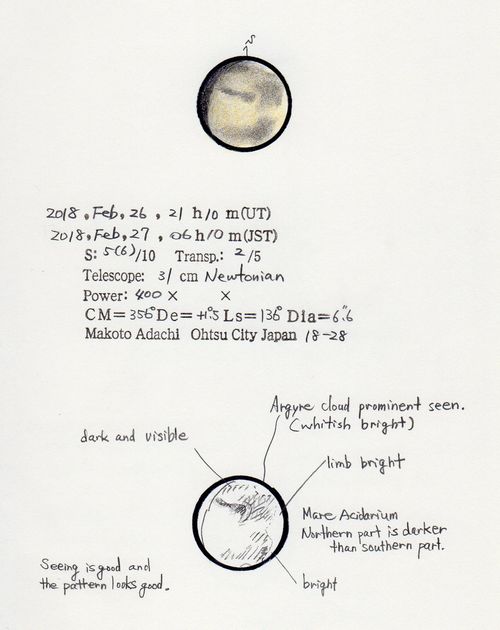 S
2018, Feb, 26, 21 h 10 m(UT)
2018, Feb, 27, 06 h 10 m(JST)
S: 5(6)/10 Transp.: 2/5
Telescope: 31 cm Newtonian
Power: 400 × ×
CM=356° De=+1.°5 Ls=136° Dia=6."6
Makoto Adachi Ohtsu City Japan 18-28
Argyre cloud prominent seen.
(whitish bright)
dark and visible
limb bright
Mare Acidarium
Northern part is darker
than southern part.
Seeing is good and
the pattern looks good.
bright